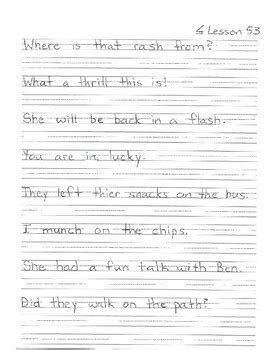 6 Lesson 53
Where is that rash from?
What a thrill this is!
She will be back in a flash.
You are in lucky.
They left thier snacks on the bus.
I munch on the chips.
She had a fun talk with Ben.
Did they walk on the path?